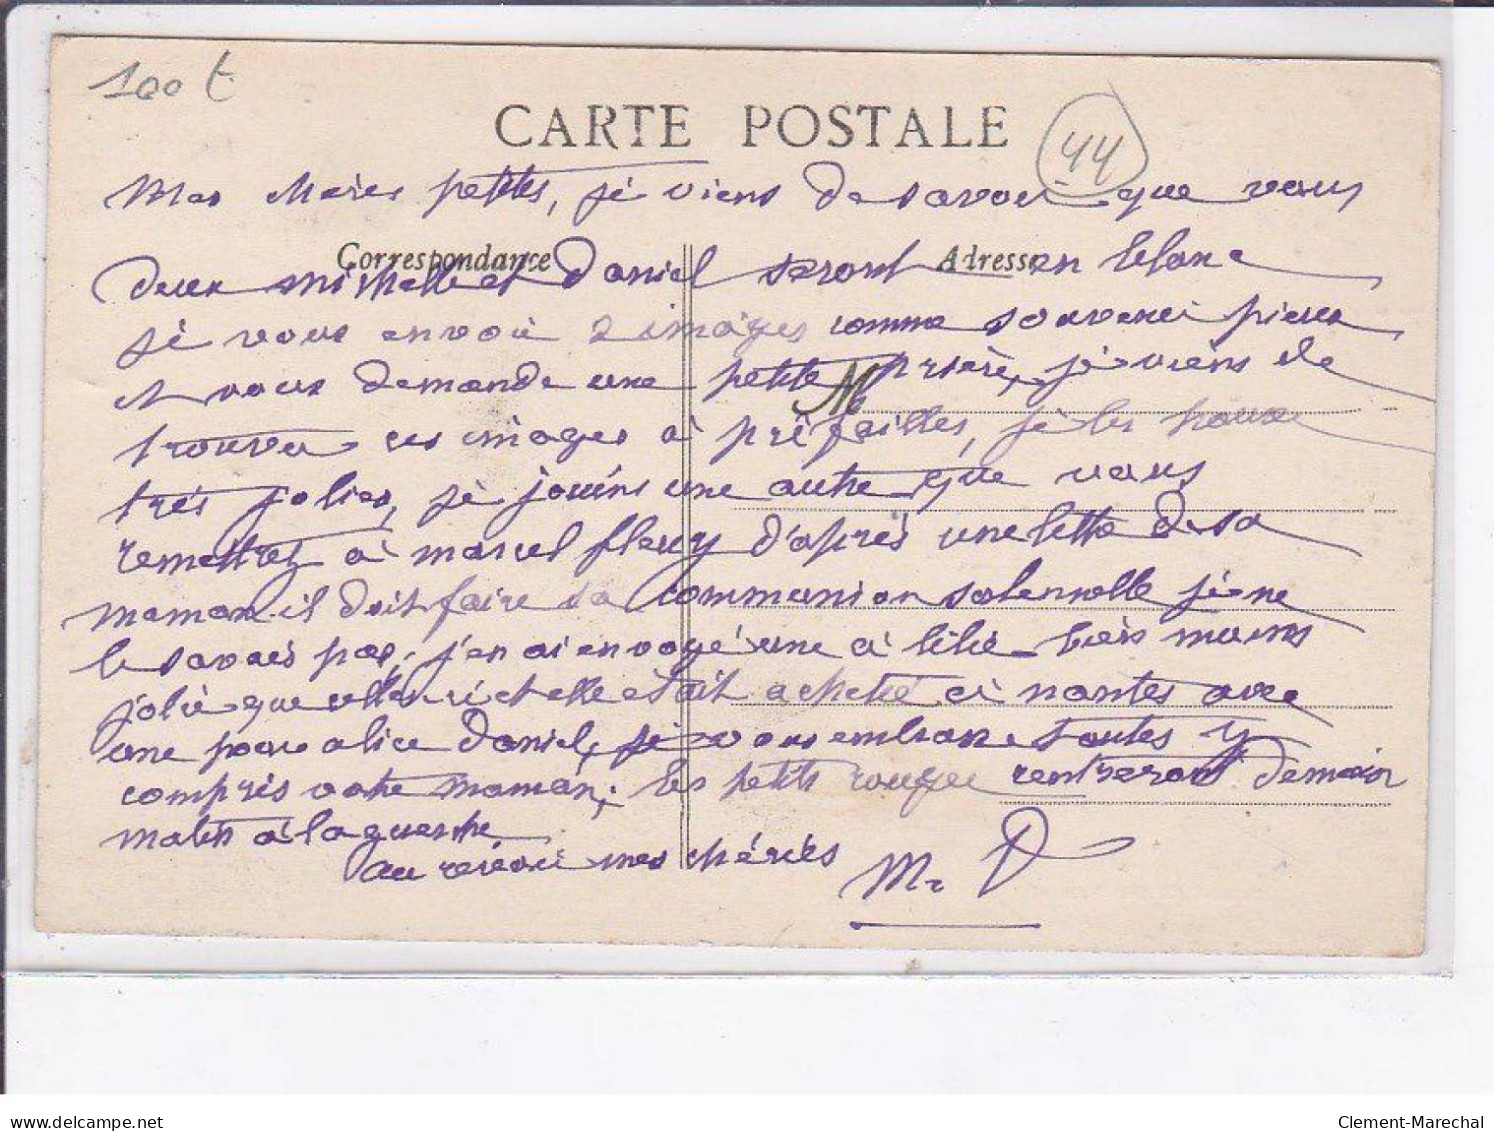 100 t
CARTE POSTALE
44
Mes chères petites, je viens de savoir que vous
Correspondance
Adresse
deux Michelle et Daniel seront en blanc
je vous envoie 2 images comme souvenir pieux
et vous demande une petite prière, je viens de
M
trouver ces images à préfailles, je les trouve
très jolies, je joins une autre que vous
remettrez à marcel fleury d'après une lettre de sa
maman il doit faire sa communion solennelle je ne
le savais pas, j'en ai envoyé une à lilie bien moins
jolie que elle était acheté à nantes avec
une pour alice Daniel, je vous embrasse toutes y
compris votre maman, les petits rouges rentreront demain
matin à la guerche
au revoir mes chéries
M. D
delcampe.net
Clement-Marechal